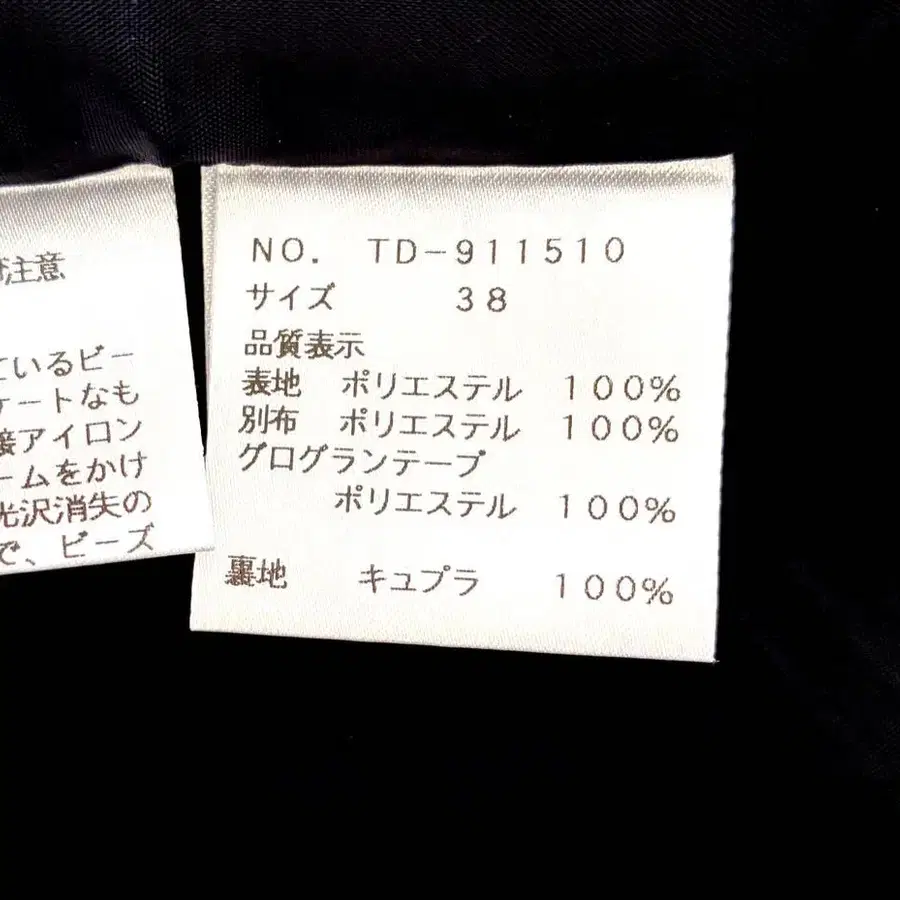 注意
ているビー
ケートなも
接アイロン
ームをかけ
光沢消失の
で、ビーズ
NO. TD-911510
サイズ 38
品質表示
表地 ポリエステル 100%
別布 ポリエステル 100%
グログランテープ
ポリエステル 100%
裏地 キュプラ 100%